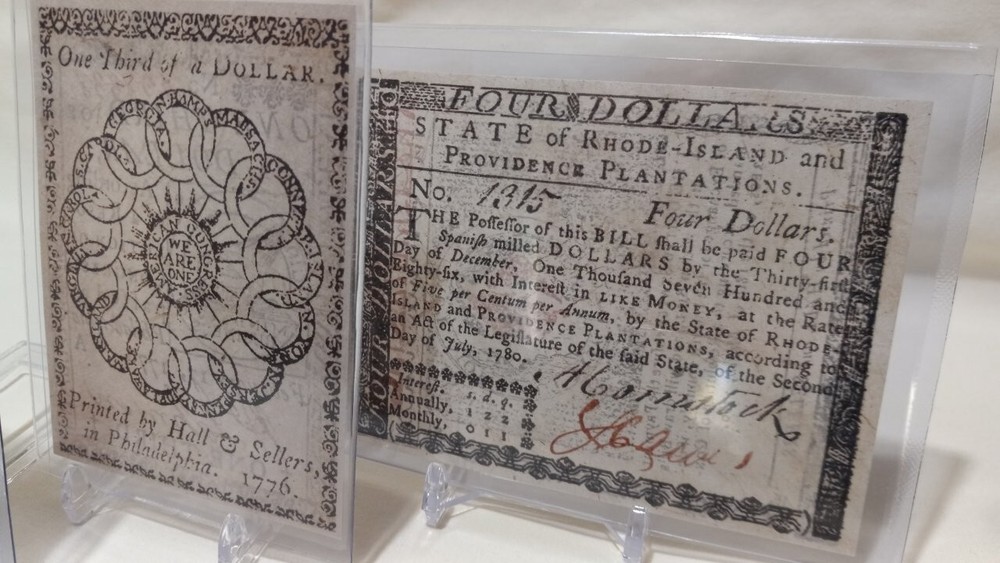 One Third of a DOLLAR.
HAMPS
MASSACHS
CONNECT
GEORGIA
S. CAROLI
AMERICAN CONGRESS
WE
ARE
ONE
Printed by Hall & Sellers,
in Philadelphia. 1776.
FOUR DOLLARS
FOUR DOLLARS
STATE of RHODE-ISLAND and
PROVIDENCE PLANTATIONS.
No. 1315 Four Dollars.
THE Poſſeſſor of this BILL ſhall be paid FOUR
Spaniſh milled DOLLARS by the Thirty-firſt
Day of December, One Thouſand Seven Hundred and
Eighty-ſix, with Intereſt in LIKE MONEY, at the Rate
of Five per Centum per Annum, by the State of RHODE-
ISLAND and PROVIDENCE PLANTATIONS, according to
an Act of the Legiſlature of the ſaid State, of the Second
Day of July, 1780.
A Comstock
Intereſt. s. d. q.
Annually, 1 2 2
Monthly, 0 1 1